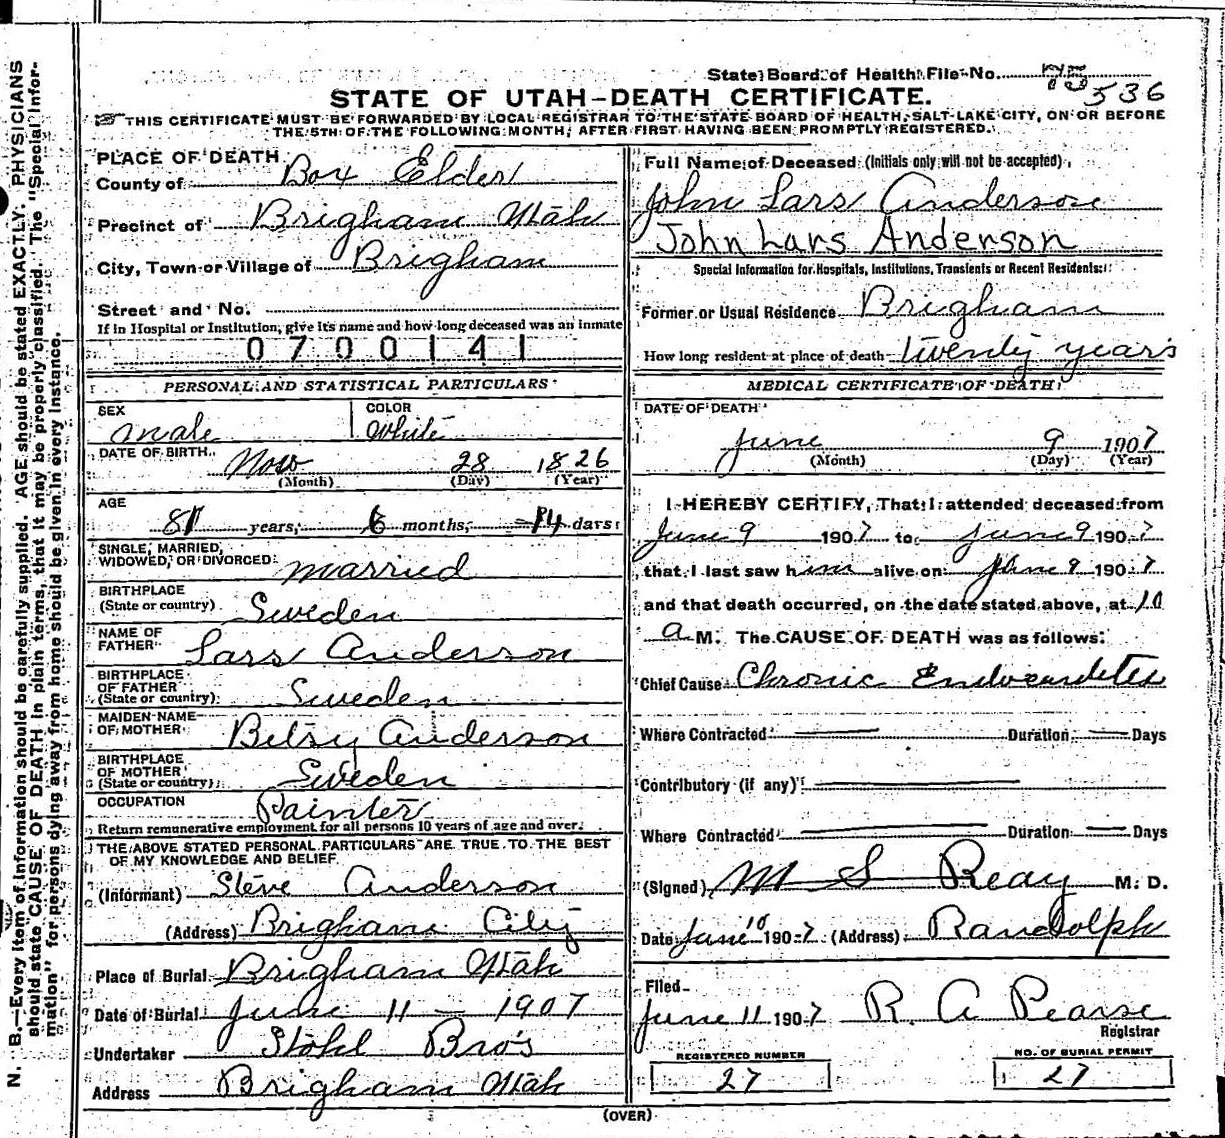 N. B.—Every item of information should be carefully supplied. AGE should be stated EXACTLY. PHYSICIANS
should state CAUSE OF DEATH in plain terms, that it may be properly classified. The "Special Infor-
mation" for persons dying away from home should be given in every instance.
State Board of Health File No. 536
STATE OF UTAH—DEATH CERTIFICATE.
THIS CERTIFICATE MUST BE FORWARDED BY LOCAL REGISTRAR TO THE STATE BOARD OF HEALTH, SALT LAKE CITY, ON OR BEFORE
THE 5TH OF THE FOLLOWING MONTH, AFTER FIRST HAVING BEEN PROMPTLY REGISTERED.
PLACE OF DEATH
County of Box Elder
Precinct of Brigham Utah
City, Town or Village of Brigham
Street and No.
If in Hospital or Institution, give its name and how long deceased was an inmate
0700141
PERSONAL AND STATISTICAL PARTICULARS
SEX COLOR
male white
DATE OF BIRTH Nov 28 1826
(Month) (Day) (Year)
AGE
years, 6 months, 14 days
SINGLE, MARRIED,
WIDOWED, OR DIVORCED married
BIRTHPLACE
(State or country) Sweden
NAME OF
FATHER Lars Anderson
BIRTHPLACE
OF FATHER
(State or country) Sweden
MAIDEN NAME
OF MOTHER Betsy Anderson
BIRTHPLACE
OF MOTHER
(State or country) Sweden
OCCUPATION Painter
Return remunerative employment for all persons 10 years of age and over.
THE ABOVE STATED PERSONAL PARTICULARS ARE TRUE TO THE BEST
OF MY KNOWLEDGE AND BELIEF
(Informant) Steve Anderson
(Address) Brigham City
Place of Burial Brigham Utah
Date of Burial June 11 — 1907
Undertaker Stohl Bro's
Address Brigham Utah
Full Name of Deceased (Initials only will not be accepted)
John Lars Anderson
John Lars Anderson
Special Information for Hospitals, Institutions, Transients or Recent Residents:
Former or Usual Residence Brigham
How long resident at place of death twenty years
MEDICAL CERTIFICATE OF DEATH
DATE OF DEATH
June 9 1907
(Month) (Day) (Year)
I HEREBY CERTIFY, That I attended deceased from
June 9 1907 to June 9 1907
that I last saw him alive on June 9 1907
and that death occurred, on the date stated above, at 10
a M. The CAUSE OF DEATH was as follows:
Chief Cause Chronic Endocardites
Where Contracted — Duration — Days
Contributory (if any) —
Where Contracted — Duration — Days
(Signed) M S Reay M. D.
Date June 10 1907 (Address) Randolph
Filed
June 11 1907 R. A Pearse
Registrar
REGISTERED NUMBER NO. OF BURIAL PERMIT
27 27
(OVER)